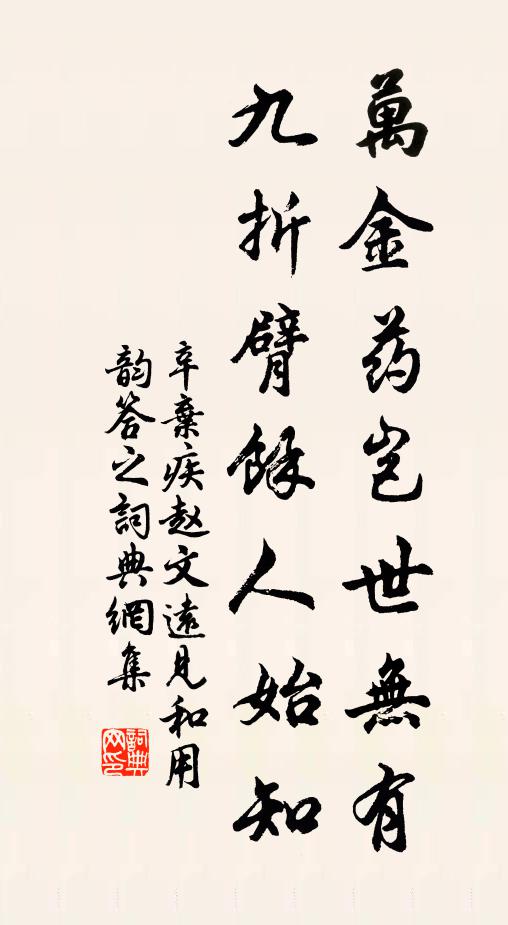 萬金药岂世無有
九折臂餘人始知
辛棄疾赵文遠見和用
韵答之詞典網集
詞典网印